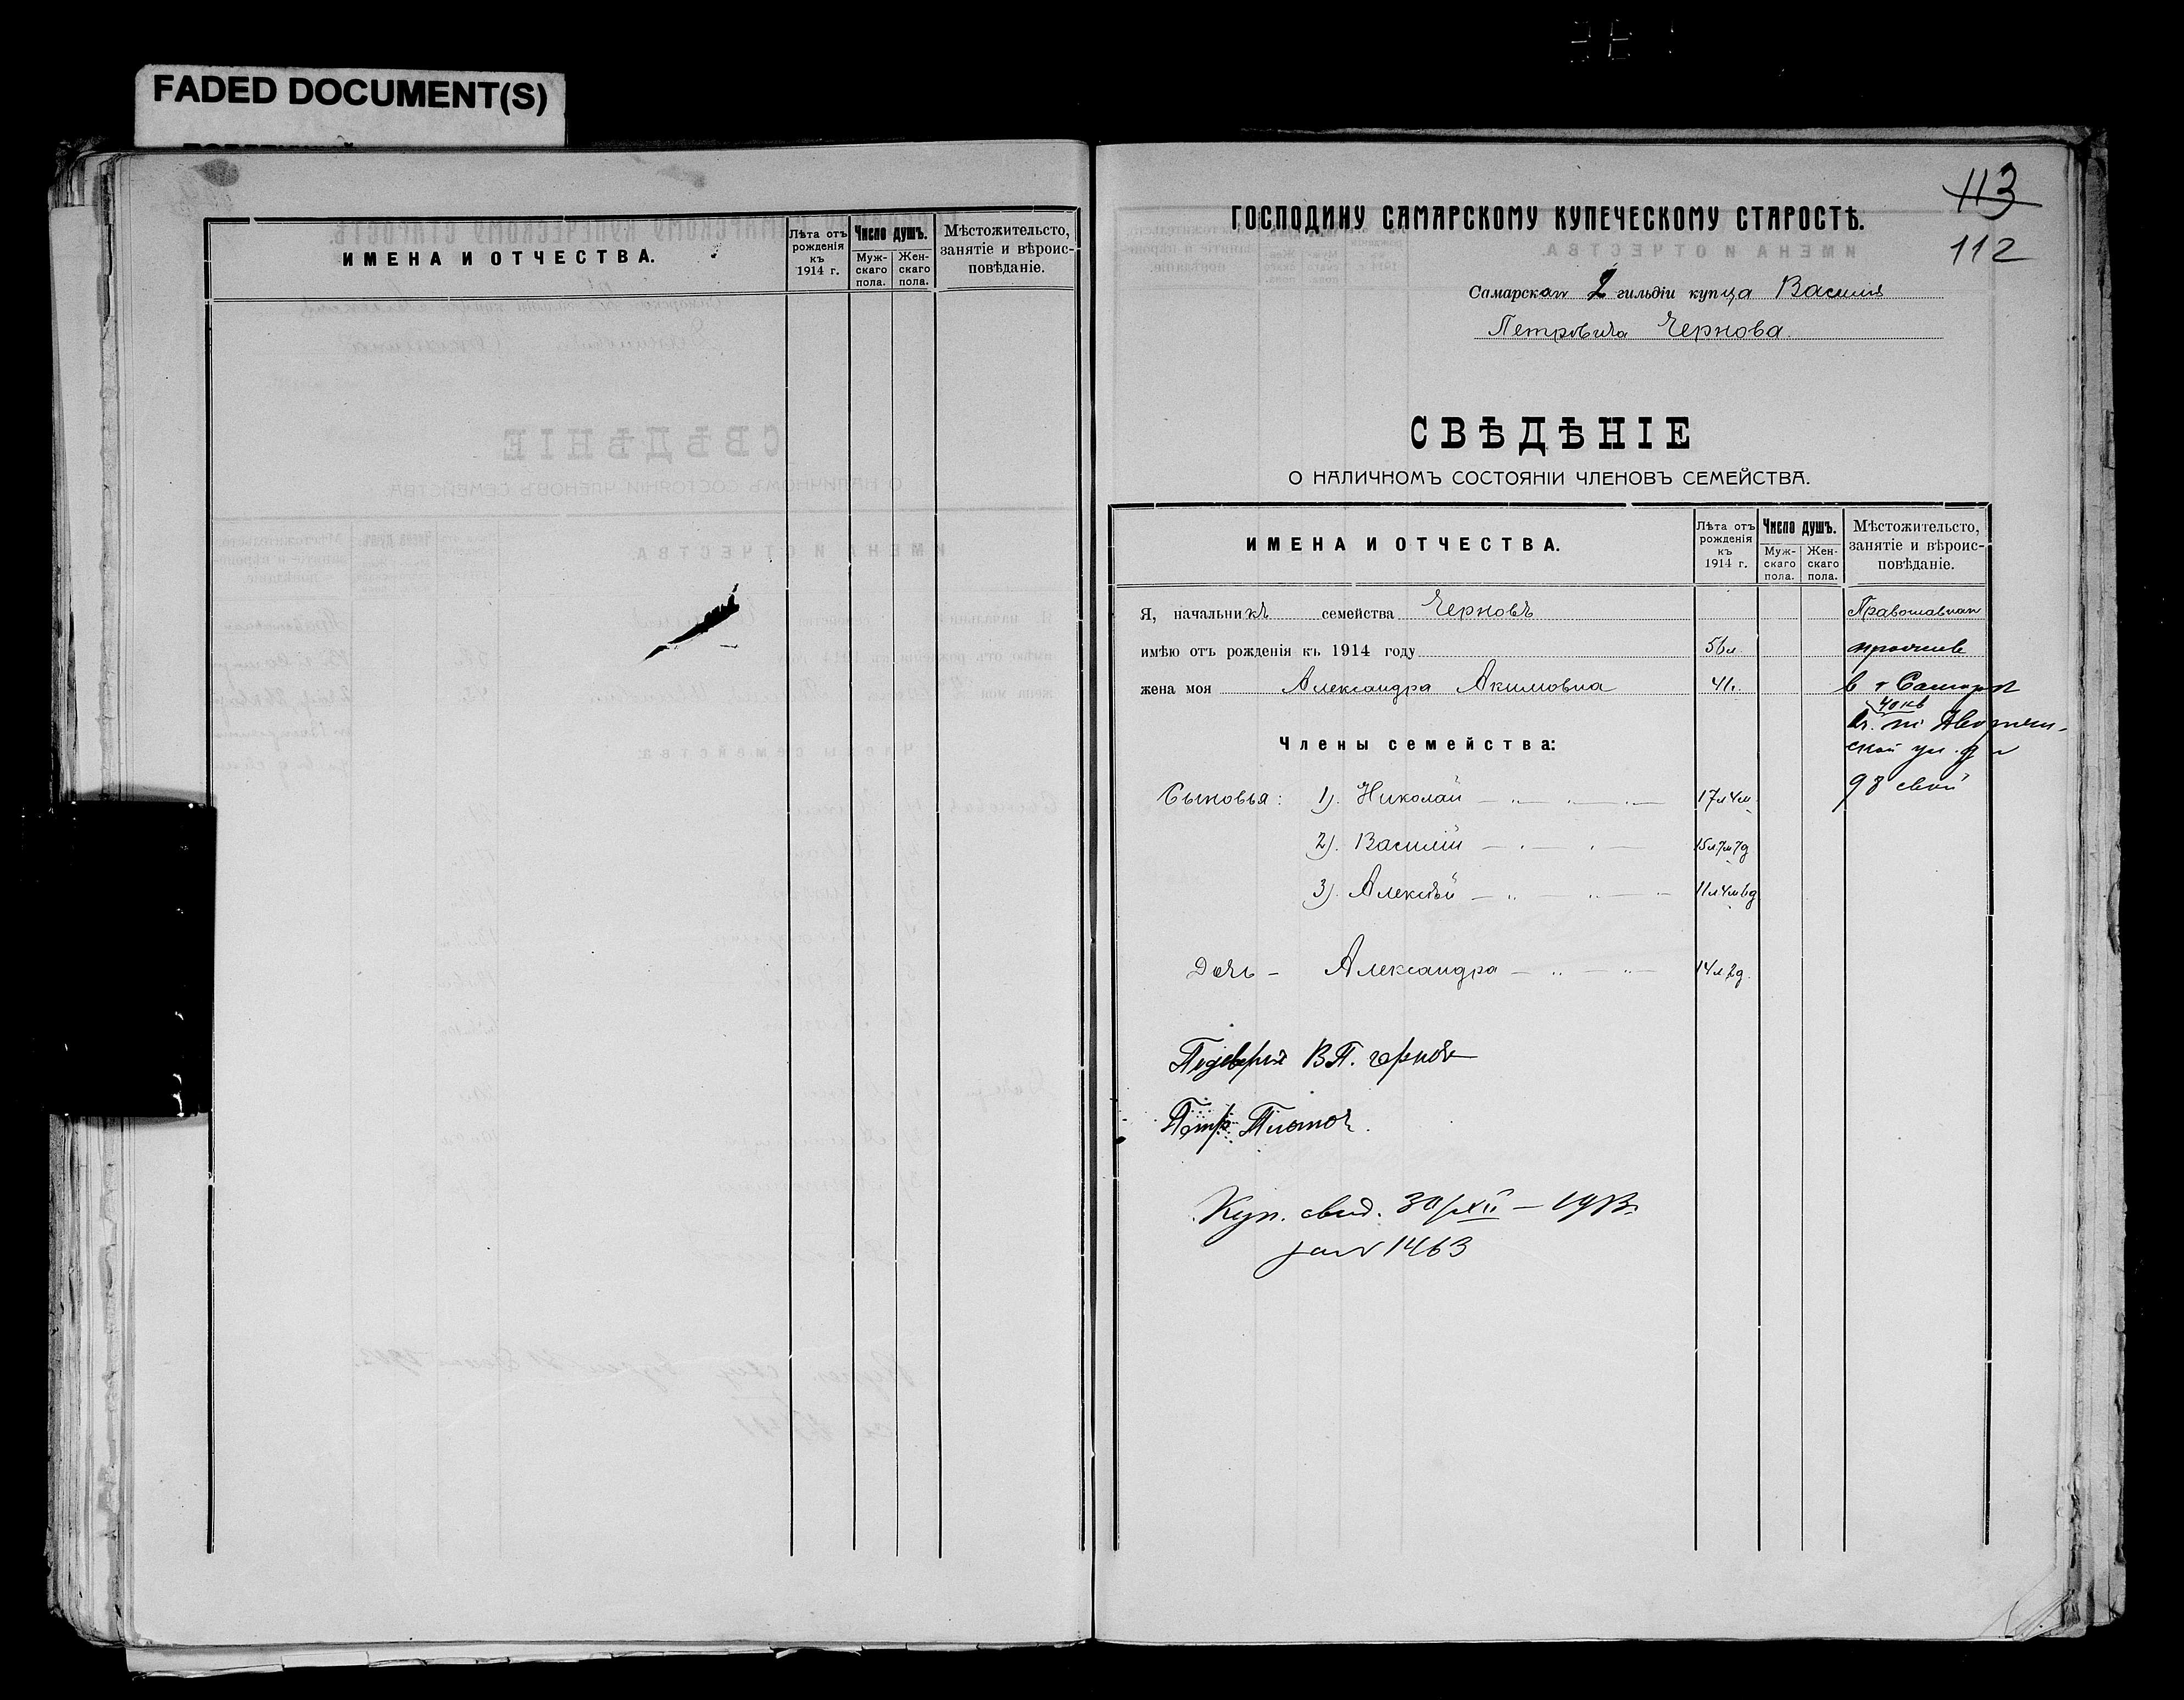 FADED DOCUMENT(S)
ИМЕНА И ОТЧЕСТВА.
Лѣта отъ рожденія къ 1914 г.
Число душъ.
Муж-скаго пола.
Жен-скаго пола.
Мѣстожительсто, занятіе и вѣроис-повѣданіе.
113
112
ГОСПОДИНУ САМАРСКОМУ КУПЕЧЕСКОМУ СТАРОСТѢ.
Самарскаго 2 гильдіи купца Василія
Петровича Чернова.
СВѢДѢНІЕ
О НАЛИЧНОМЪ СОСТОЯНІИ ЧЛЕНОВЪ СЕМЕЙСТВА.
ИМЕНА И ОТЧЕСТВА.
Лѣта отъ рожденія къ 1914 г.
Число душъ.
Муж-скаго пола.
Жен-скаго пола.
Мѣстожительсто, занятіе и вѣроис-повѣданіе.
Я, начальникъ семейства Черновъ
Православнаго
имѣю отъ рожденія къ 1914 году 56 л.
жена моя Александра Акимовна 41 г.
в г Самарѣ
40 кв
Члены семейства:
ской ул. д
Сыновья: 1). Николай — „ — „ — 17 л 4 м
98 свой
2). Василій — „ — „ — 15 л 7 м 7 д
3). Алексѣй — „ — „ — 11 л 4 м 6 д
Дочь — Александра — „ — „ — 14 л 2 д.
В П. Чернов
Петр
Куп. свид. 30/XII — 1913 г.
за № 1463